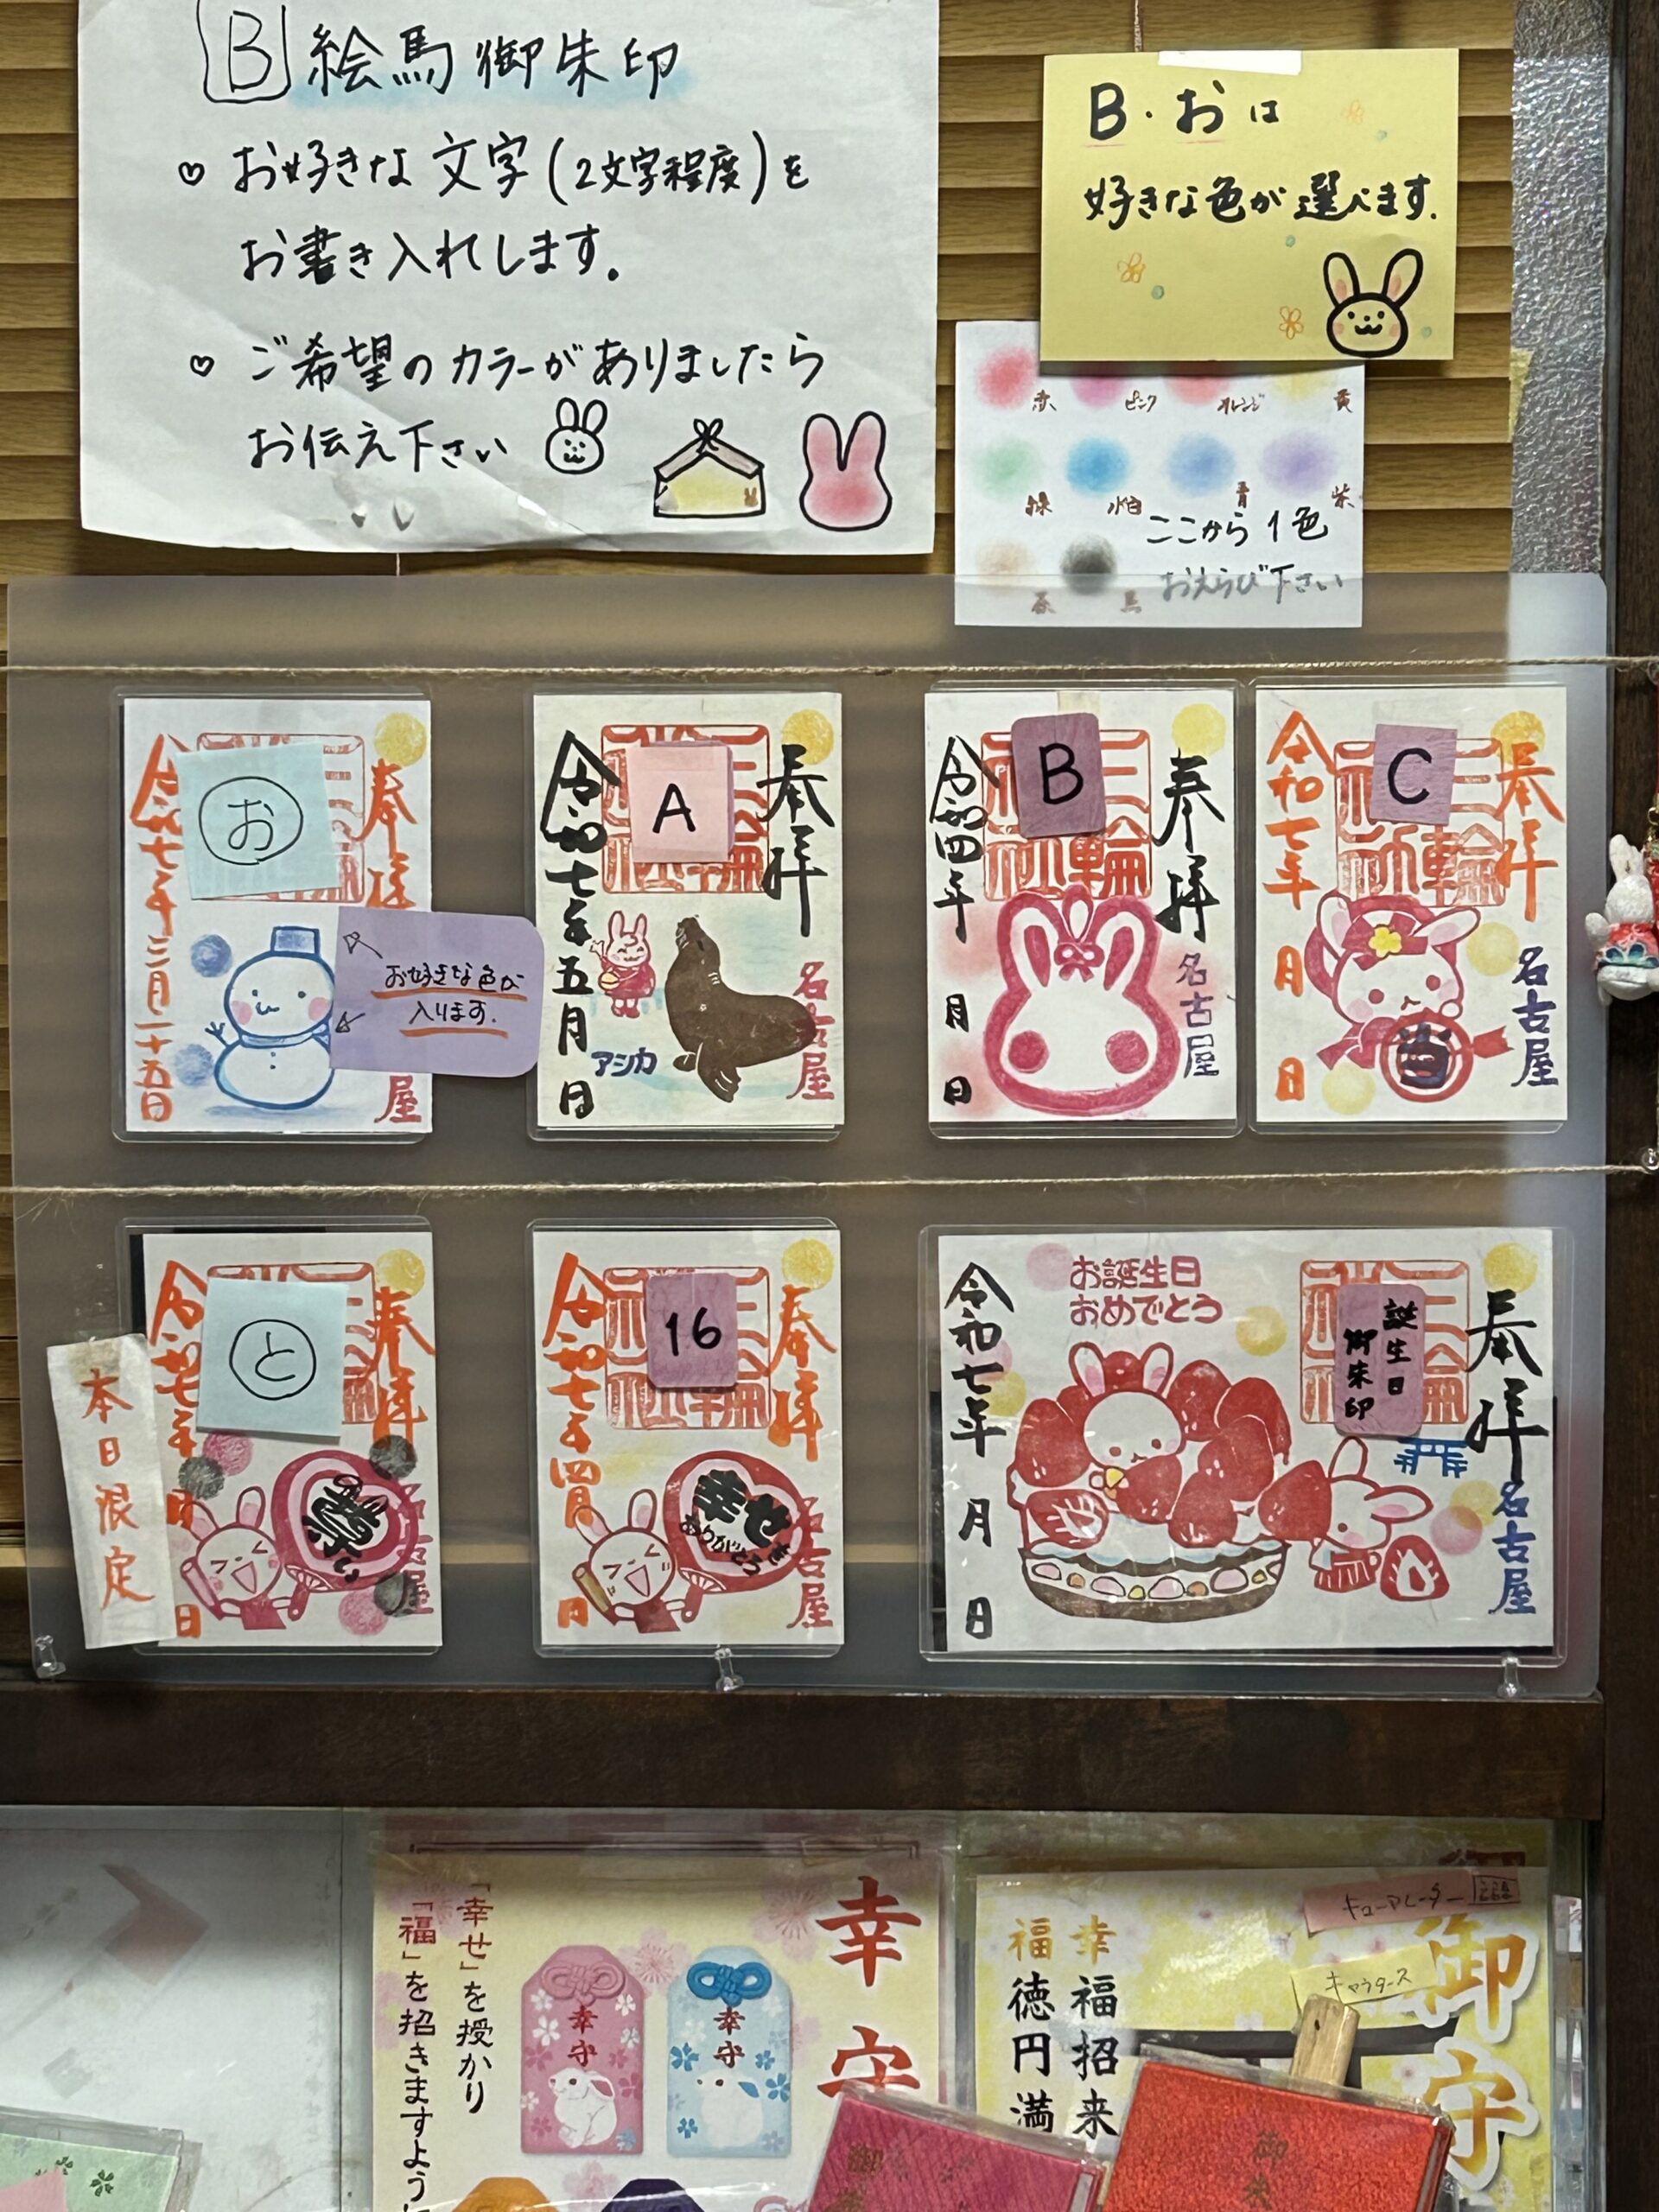 B 絵馬御朱印
♡ お好きな文字(2文字程度)を
お書き入れします。
♡ ご希望のカラーがありましたら
お伝え下さい
B・おは
好きな色が選べます.
赤 ピンク オレンジ 黄
緑 水色 青 紫
茶 黒
ここから1色
おえらび下さい
お
奉拝
令和七年三月二十五日
屋
お好きな色が
入ります.
A
奉拝
名古屋
令和七年五月 日
アシカ
B
奉拝
名古屋
三輪
令和四年 月 日
C
奉拝
名古屋
三輪
令和七年 月 日
当
本日限定
と
奉拝
令和七年 月 日
16
奉拝
名古屋
令和七年四月 日
幸せ
ありがとう
お誕生日
おめでとう
誕生日
御朱印
奉拝
名古屋
令和七年 月 日
幸守
「幸せ」を授かり
「福」を招きますように
幸守
幸守
キューアレーター
キャラタース
御守
幸福招来
福徳円満
御
御朱